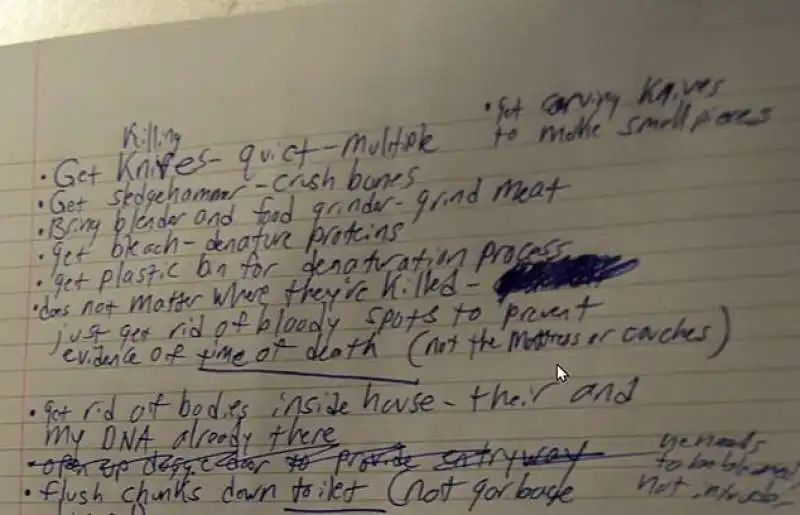 Killing
• Get Knifes - quiet - multiple
• Get sledgehammer - crush bones
• Bring blender and food grinder - grind meat
• get bleach - denature proteins
• get plastic bin for denaturation process
• does not matter where they're killed -
just get rid of bloody spots to prevent
evidence of time of death (not the mattress or couches)
• get carving Knives
to make small pieces
• get rid of bodies inside house - their and
my DNA already there
• open up door to provide entryway
• flush chunks down toilet (not garbage
he needs
to be blamed
not intruder